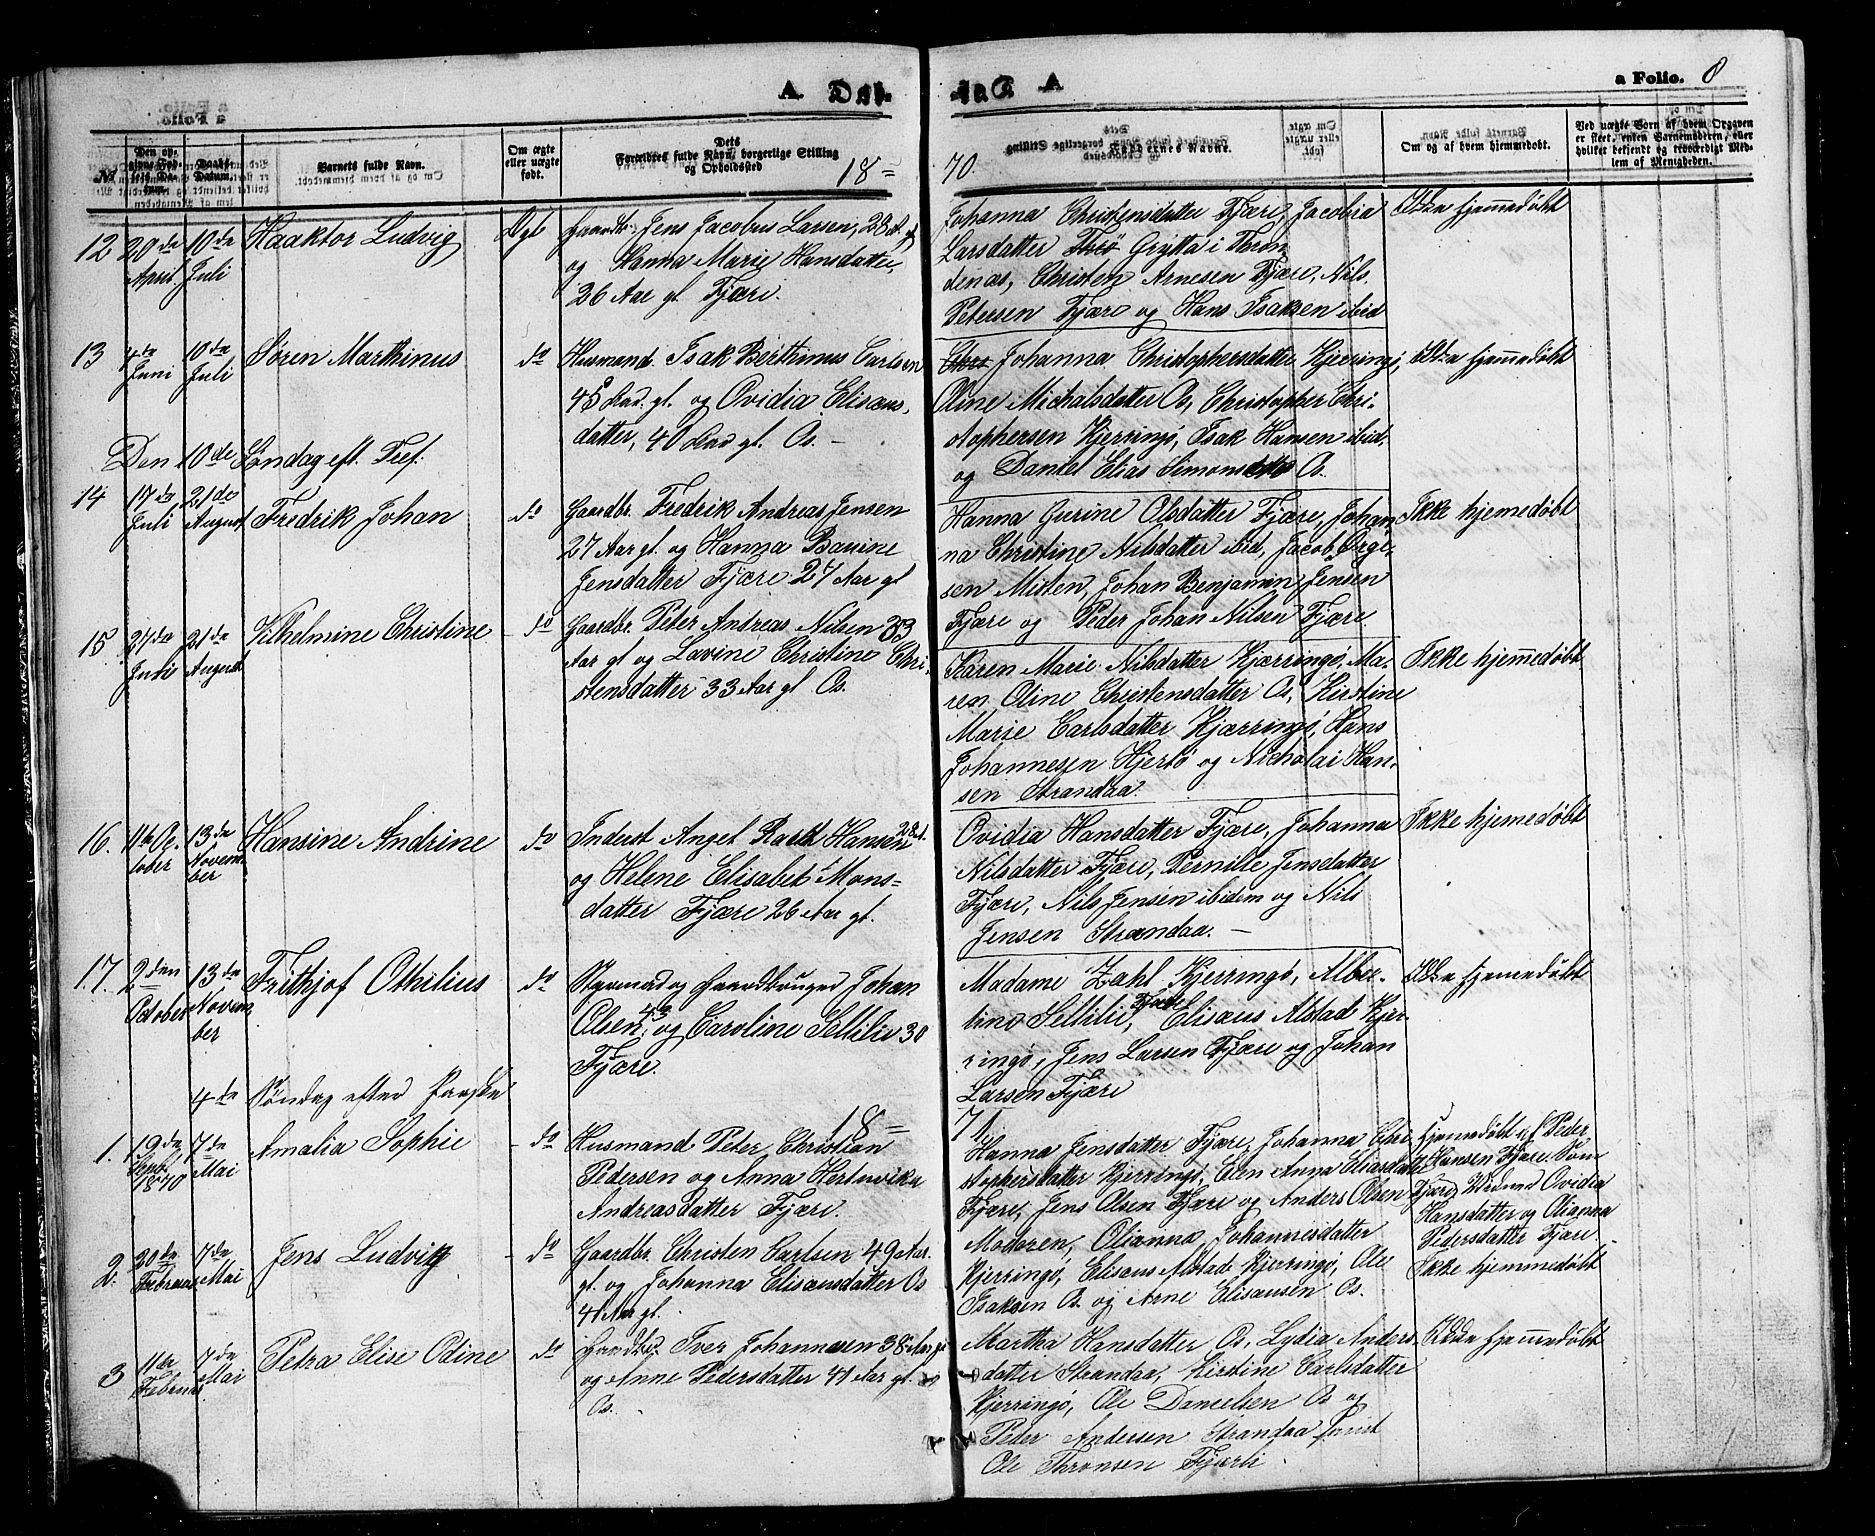 A Døb-
te. A
a Folio. 8
№
Den opgivne Fødsels Datum.
Daabs Datum.
Barnets fulde Navn.
Om ægte eller uægte født.
Dets
Forældres fulde Navn, borgerlige Stilling og Opholdssted
18=
70.
Faddernes Navne.
Om og af hvem hjemmedøbt.
Ved uægte Børn af hvem Opgaven er skeet, enten Barnemoderen, eller hvilket bekjendt og troværdigt Medlem af Menigheden.
12 20de April 10de Juli Haaktor Ludvig Ægt
Gaardbr. Jens Jacobus Larsen, 28
og Hanna Marie Hansdatter,
26 Aar gl. Fjære.
Johanna Christensdatter Fjære, Jacobia
Larsdatter Grytta i Thron
denæs, Christen Arnesen Fjære, Nils
Petersen Fjære og Hans Isaksen ibid
Ikke hjemmedøbt
13 4de Juni 10de Juli Søren Marthinus do
Husmand Isak Berthinus Carlsen
45 Aar gl. og Ovidia Elisæus-
datter, 40 Aar gl. Os. -
Johanna Christophersdatter Kjerringø,
Oline Michalsdatter Os, Christopher Chri-
stophersen Kjerringø, Isak Hansen ibid.
og Daniel Elias Simonsen Os.
Ikke hjemmedøbt
Den 10de Søndag eft. Tref.
14 17de Juli 21de August Fredrik Johan do
Gaardbr. Fredrik Andreas Jensen
27 Aar gl. og Hanna Bauine
Jensdatter Fjære 27 Aar gl
Hanna Gurine Olsdatter Fjære, Johan
na Christine Nilsdatter ibid, Jacob Ørge-
sen Misten, Johan Benjamin Jensen
Fjære og Peder Johan Nilsen Fjære
Ikke hjemedøbt
15. 27de Juli 21de August Vilhelmine Christine - do
Gaardbr. Peter Andreas Nilsen 33
Aar gl og Lavine Christine Chri-
stensdatter 33 Aar gl Os.
Karen Marie Nilsdatter Kjærringø, Ma-
ren Oline Christensdatter Os, Kirstine
Marie Carlsdatter Kjærringø, Hans
Johannesen Hjertø og Nicholai Han-
sen Strandaa.
Ikke hjemmedøbt
16. 11te October 13de November Hansine Andrine do
Inderst Angel Hansen 28
og Helene Elisabet Mons=
datter Fjære 26 Aar gl.
Ovidia Hansdatter Fjære, Johanna
Nilsdatter Fjære, Pernille Jensdatter
Fjære, Nils Jensen ibidem og Nils
Jensen Strandaa. -
Ikke hjemmedøbt
17. 2den October 13de November Frithjof Othilius do
og Gaardbruger Johan
Olsen, 43 og Caroline Sellilie 30
Fjære.
Madame Zahl Kjerringø, Alber-
tine Sellilie, Fjære Elisæus Alstad Kjer-
ringø, Jens Larsen Fjære og Johan
Larsen Fjære
Ikke hjemmedøbt
4de Søndag efter Paaske
18=
71
1. 19de Septb. 1870 7de Mai Amalia Sophie - do
Husmand Peter Christian
Pedersen og Anna Hertuvika
Andreasdatter Fjære.
Hanna Jensdatter Fjære, Johanna Chri-
stophersdatter Kjerringø, Elen Anna Eliasdatter
Fjære, Jens Olsen Fjære og Anders Olsen Fjære
Hjemmedøbt af Peder
Hansen Fjære. Som
Vidner Ovidia
Hansdatter og Olianna
Pedersdatter Fjære.
2. 20de Februar 7de Mai Jens Ludvig - do
Gaardbr. Christen Carlsen 49 Aar
gl. og Johanna Elisæusdatter Os
41 Aar gl.
Moderen, Olianna Johannesdatter
Kjerringø, Elisæus Alstad Kjerringø, Ole
Isaksen Os. og Arne Elisæusen Os.
Ikke hjemmedøbt
3 11te Februar 7de Mai Petra Elise Odine do
Gaardbr. Iver Johannesen 38 Aar gl
og Anne Pedersdatter 41 Aar gl.
Os.
Martha Hansdatter Os, Lydia Anders-
datter Strandaa, Kirstine Carlsdatter
Kjerringø, Ole Danielsen Os og
Peder Andersen Strandaa samt
Ole Thronsen Fjærli.
Ikke hjemmedøbt